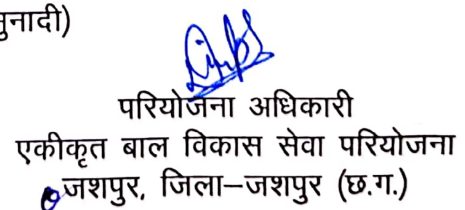 नुनादी)
परियोजना अधिकारी
एकीकृत बाल विकास सेवा परियोजना
जशपुर, जिला–जशपुर (छ.ग.)